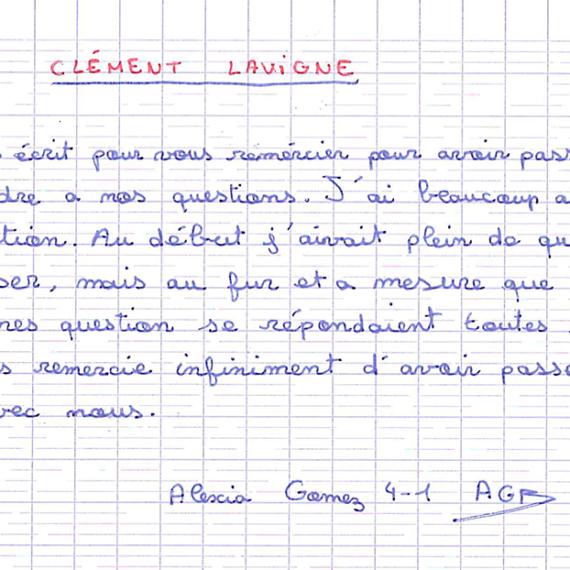 CLÉMENT LAVIGNE
écrit pour vous remércier pour avoir pass
dre a nos questions. J'ai beaucoup a
tion. Au début j'aivait plein de qu
ser, mais au fur et a mesure que
nes question se répondaient toutes
s remercie infiniment d'avoir passé
vec nous.
Alexia Gomez 4-1 AGF